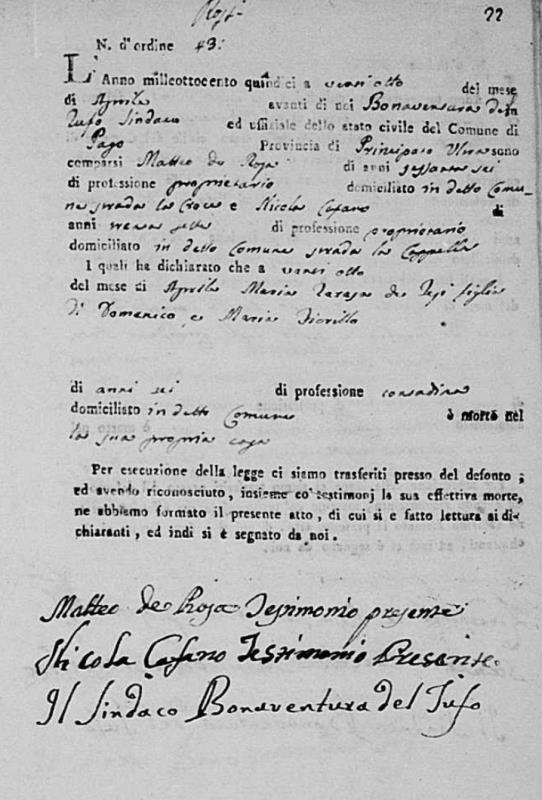 22
N. d'ordine 43:
L'Anno milleottocento quindici a venti otto del mese
di Aprile avanti di noi Bonaventura del
Tufo Sindaco ed uffiziale dello stato civile del Comune di
Pago Provincia di Principato Ultra sono
comparsi Matteo de Rosa di anni sessanta sei
di professione proprietario domiciliato in detto Comu-
ne strada la Croce e Nicola Cafano di
anni trenta sette di professione proprietario
domiciliato in detto Comune strada la Cappella
I quali ha dichiarato che a venti otto
del mese di Aprile Maria Teresa de figlia
di Domenico e Maria Fiorillo
di anni sei di professione contadina
domiciliato in detto Comune è morto nel
la sua propria casa
Per esecuzione della legge ci siamo trasferiti presso del defonto;
ed avendo riconosciuto, insieme co' testimonj la sua effettiva morte,
ne abbiamo formato il presente atto, di cui si è fatto lettura ai di-
chiaranti, ed indi si è segnato da noi.
Matteo de Rosa Testimonio presente
Nicola Cafano Testimonio Presente
Il Sindaco Bonaventura del Tufo